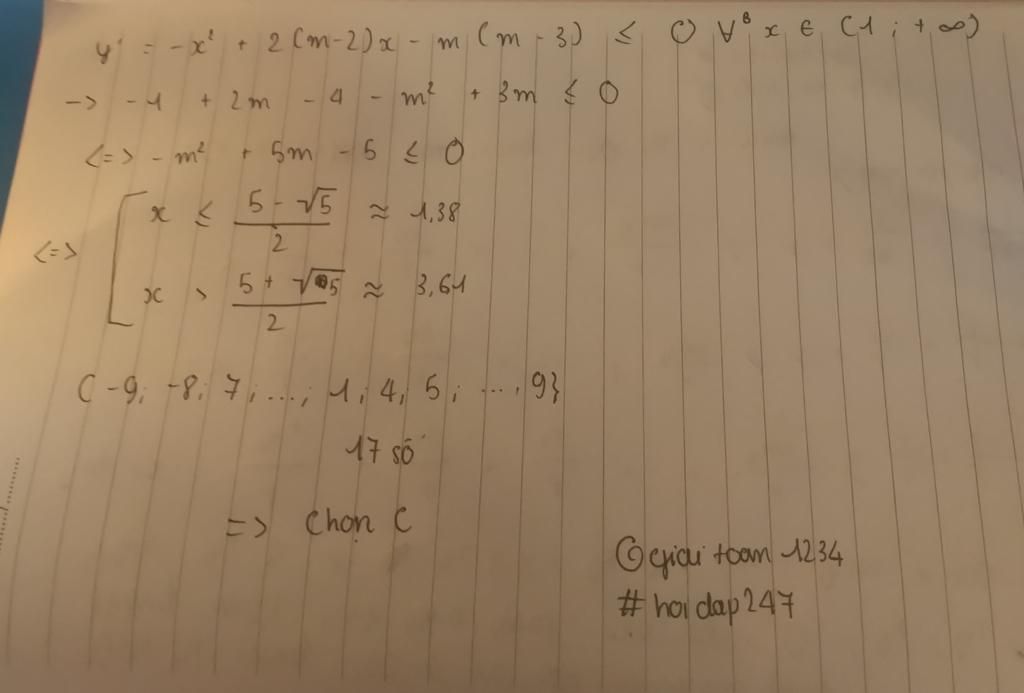 y' = -x² + 2(m-2)x - m(m-3) ≤ 0 ∀ x ∈ (1; +∞)
-> -1 + 2m - 4 - m² + 3m ≤ 0
<=> -m² + 5m - 5 ≤ 0
x ≤ (5 - √5)/2 ≈ 1,38
<=>
x > (5 + √5)/2 ≈ 3,61
(-9; -8; 7; ...; 1; 4; 5; ..., 9}
17 số
=> Chọn C
©giai toan 1234
#hoidap247